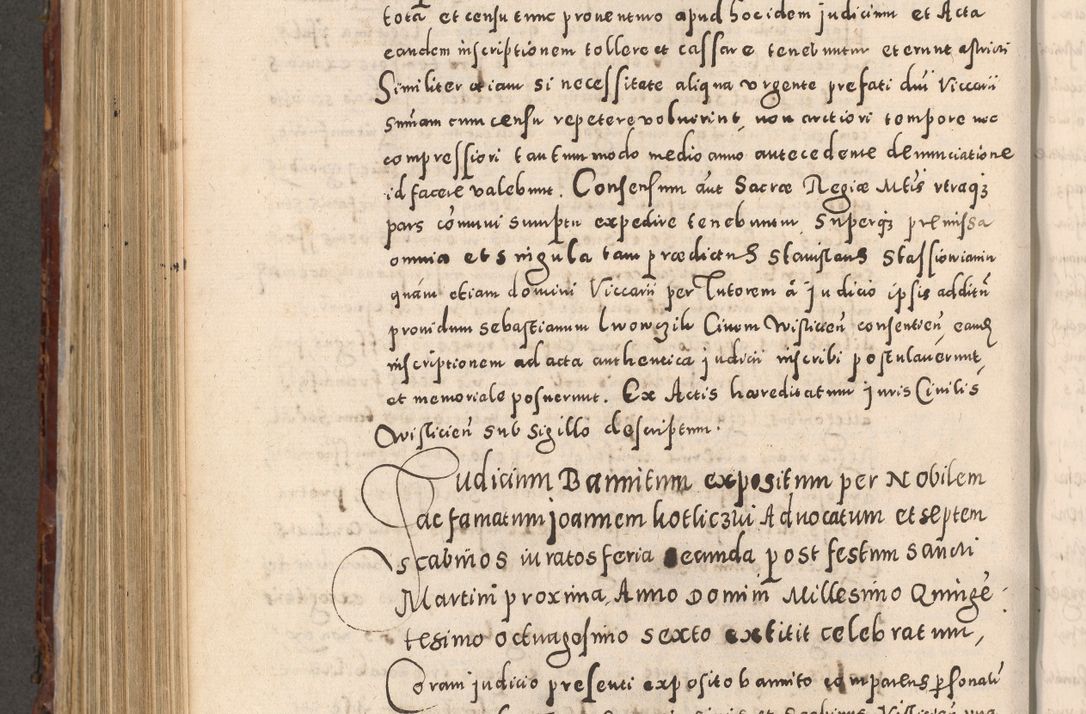 totã et censu tunc proventuro apud hoc idem judicium et Acta
eandem inscriptionem tollere et cassare tenebuntur et erunt astricti
Similiter etiam si necessitate aliqua urgente prefati dñi Viccarii
sum̃am cum censu repetere voluerint, non arctiori tempore nec
compressiori tantummodo medio anno antecedente denunciatione
id facere valebunt. Consensum aut Sacræ Regiæ Mtis vtraqȝ
pars com̃uni sumptu expedire tenebuntur, Superqȝ præmissa
omnia et singula tam prædictus Stanislaus Stassiowianin
quám etiam domini Viccarii per Tutorem â judicio ipsis additũ
providum Sebastianum Lwowczik Civem Wislicieñ consentieñ eandẽ
inscriptionem ad acta authentica judicii inscribi postulaverunt,
et memoriale posuerunt. Ex Actis hæreditatum juris Civilis
Wislicieñ sub Sigillo descriptum.
Judicium Bannitum expositum per Nobilem
ac famatum joannem kotliczui Advocatum et septem
scabinos iuratos feria secunda post festum Sancti
Martini proxima, Anno Domini Millesimo Quingẽ
tesimo octuagesimo sexto extitit celebratum,
Coram judicio presenti exposito bannito comparens psonalĩ
et Scabinis